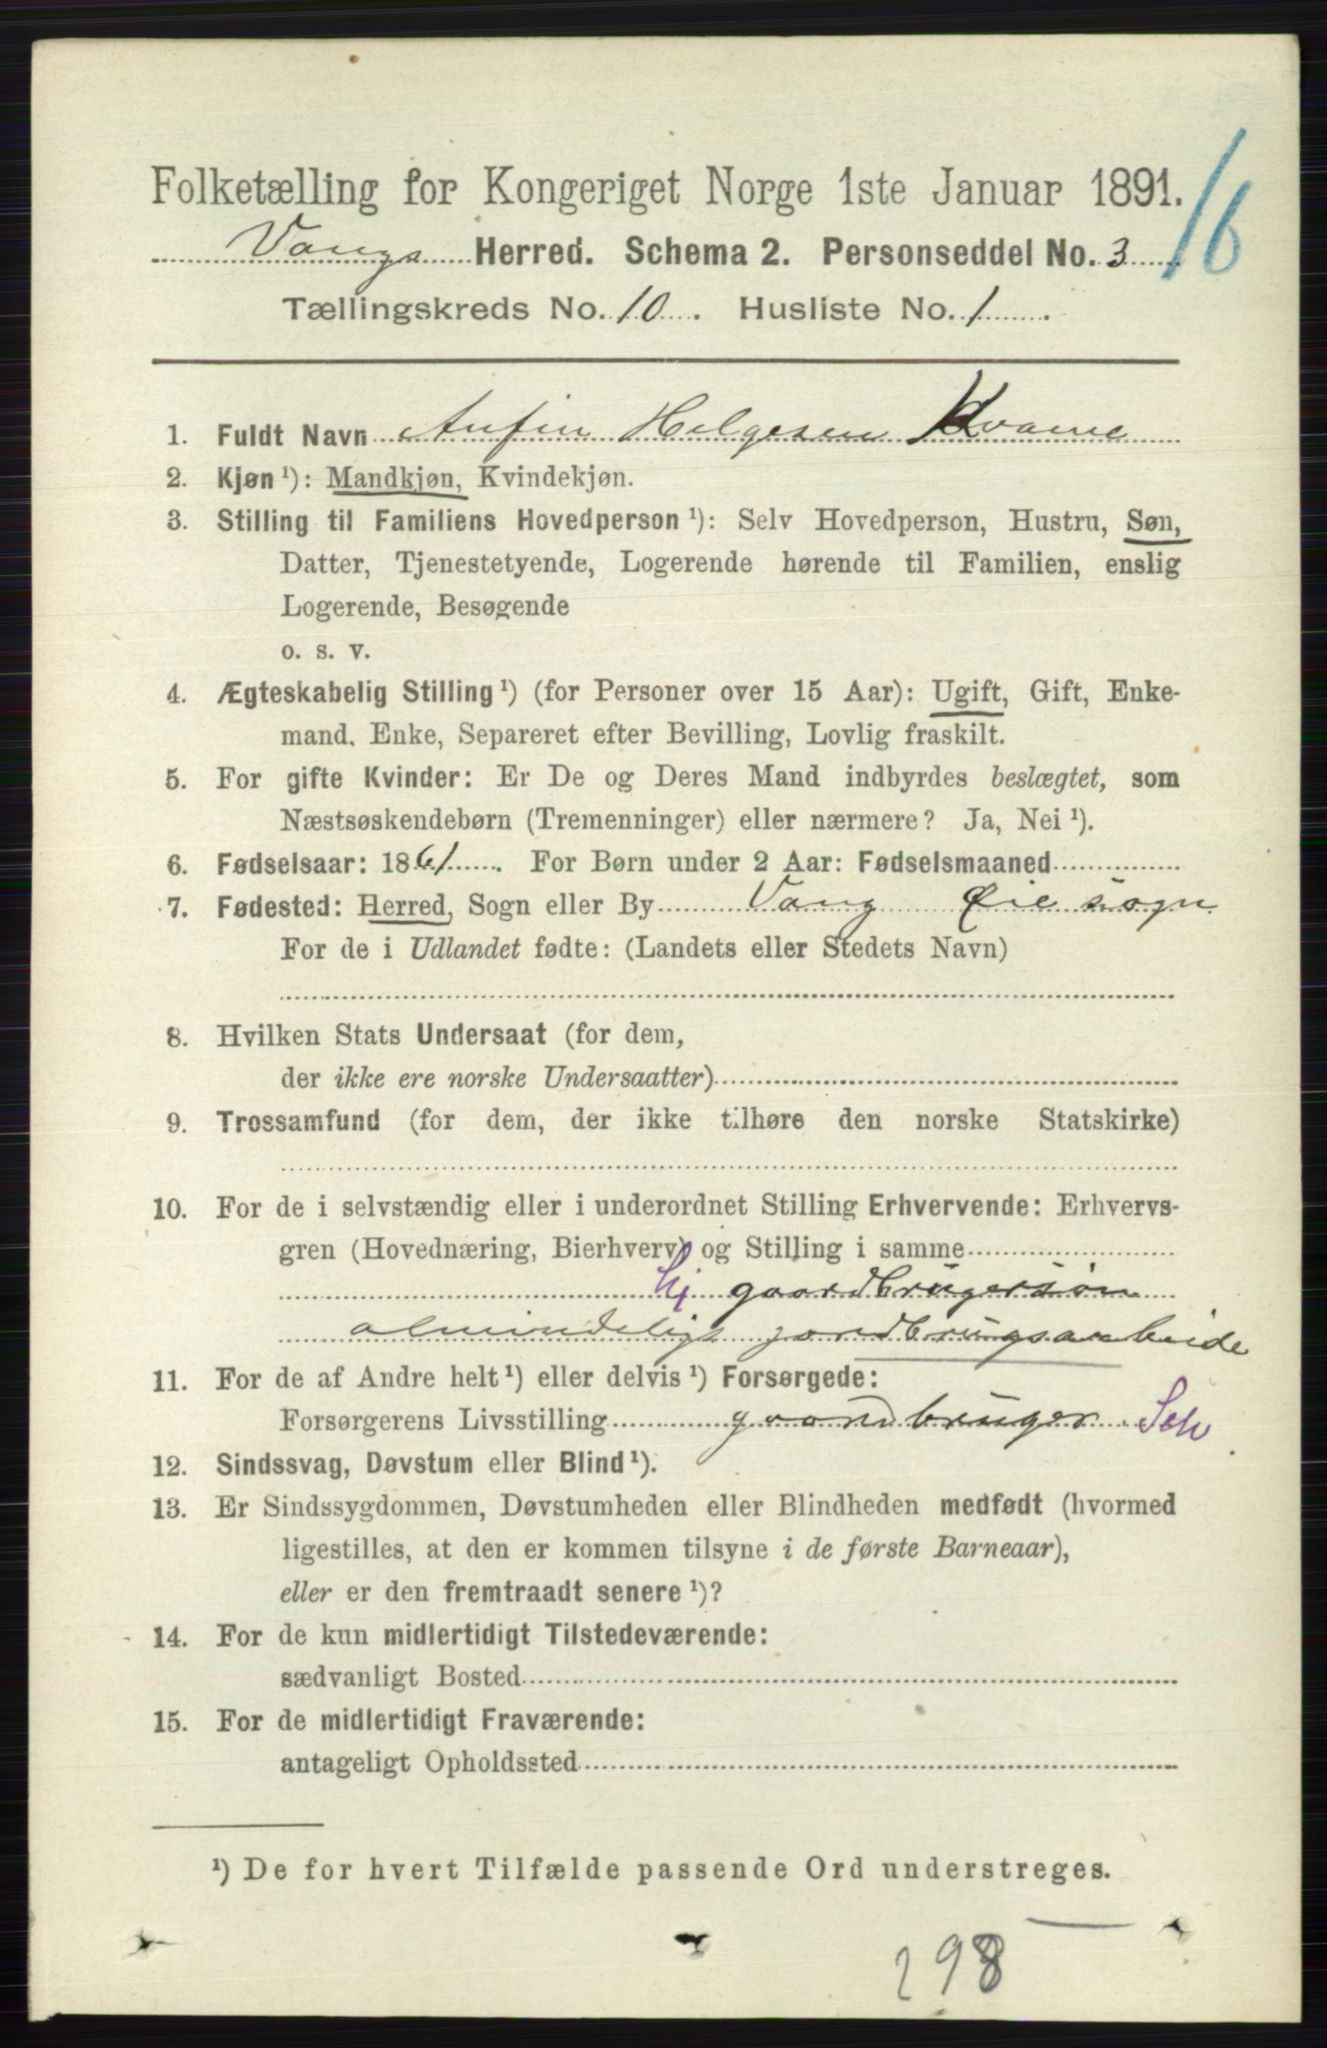 Folketælling for Kongeriget Norge 1ste Januar 1891.
16
Vangs Herred. Schema 2. Personseddel No. 3
Tællingskreds No. 10. Husliste No. 1.
1. Fuldt Navn Anfin Helgesen Kvame
2. Kjøn ¹): Mandkjøn, Kvindekjøn.
3. Stilling til Familiens Hovedperson ¹): Selv Hovedperson, Hustru, Søn,
Datter, Tjenestetyende, Logerende hørende til Familien, enslig
Logerende, Besøgende
o. s. v.
4. Ægteskabelig Stilling ¹) (for Personer over 15 Aar): Ugift, Gift, Enke-
mand, Enke, Separeret efter Bevilling, Lovlig fraskilt.
5. For gifte Kvinder: Er De og Deres Mand indbyrdes beslægtet, som
Næstsøskendebørn (Tremenninger) eller nærmere? Ja, Nei ¹).
6. Fødselsaar: 1861. For Børn under 2 Aar: Fødselsmaaned
7. Fødested: Herred, Sogn eller By Vang Øie sogn
For de i Udlandet fødte: (Landets eller Stedets Navn)
8. Hvilken Stats Undersaat (for dem,
der ikke ere norske Undersaatter)
9. Trossamfund (for dem, der ikke tilhøre den norske Statskirke)
10. For de i selvstændig eller i underordnet Stilling Erhvervende: Erhvervs-
gren (Hovednæring, Bierhverv) og Stilling i samme
gaardbrugersøn
almindelig jordbrugsarbeide
11. For de af Andre helt ¹) eller delvis ¹) Forsørgede:
Forsørgerens Livsstilling gaardbruger. Selv
12. Sindssvag, Døvstum eller Blind ¹).
13. Er Sindssygdommen, Døvstumheden eller Blindheden medfødt (hvormed
ligestilles, at den er kommen tilsyne i de første Barneaar),
eller er den fremtraadt senere ¹)?
14. For de kun midlertidigt Tilstedeværende:
sædvanligt Bosted
15. For de midlertidigt Fraværende:
antageligt Opholdssted
¹) De for hvert Tilfælde passende Ord understreges.
298